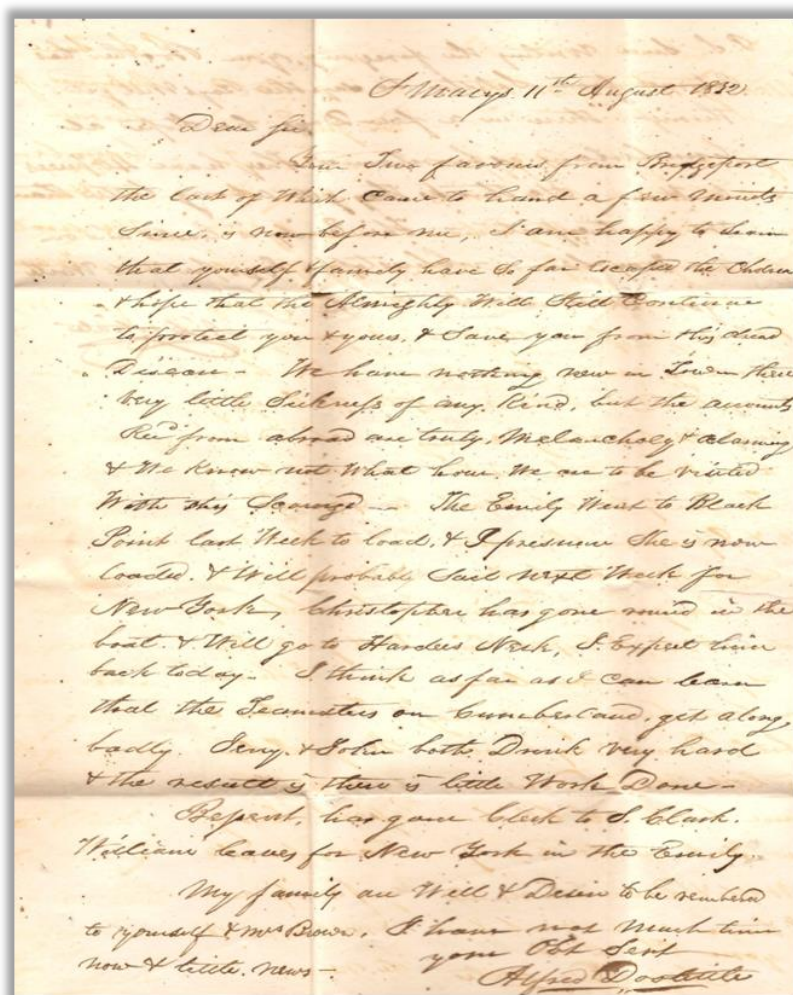 St Marys. 11th August 1832
Dear Sir
Your Two favours from Bridgeport
the last of Which Came to hand a few Minuts
Since, is now before me, I am happy to learn
that yourself & family have So far Escaped the Cholera
& hope that the Almighty Will Still Continue
to protect you & yours, & Save you from this dread
Disease - We have nothing new in Town there
very little Sickness of any Kind, but the accounts
Recd from abroad are truly, Melancholy & alarming
& We Know not What hour We are to be visited
With this Scourge - The Emily Went to Black
Point last Week to load, & I presume She is now
loaded. & Will probably Sail next Week for
New York, Christopher has gone round in the
boat. & Will go to Hardees Neck, I Expect him
back today - I think as far as I can learn
that the Teamsters on Cumberland, get along
badly. Jerry. & John both Drink very hard
& the result is there is little Work Done -
has gone Clerk to S. Clark.
William leaves for New York in the Emily.
My family are Well & Desire to be rembered
to yourself & Mrs Brown. I have not Much time
now & little. news -
your Obt Servt
Alfred Doolittle